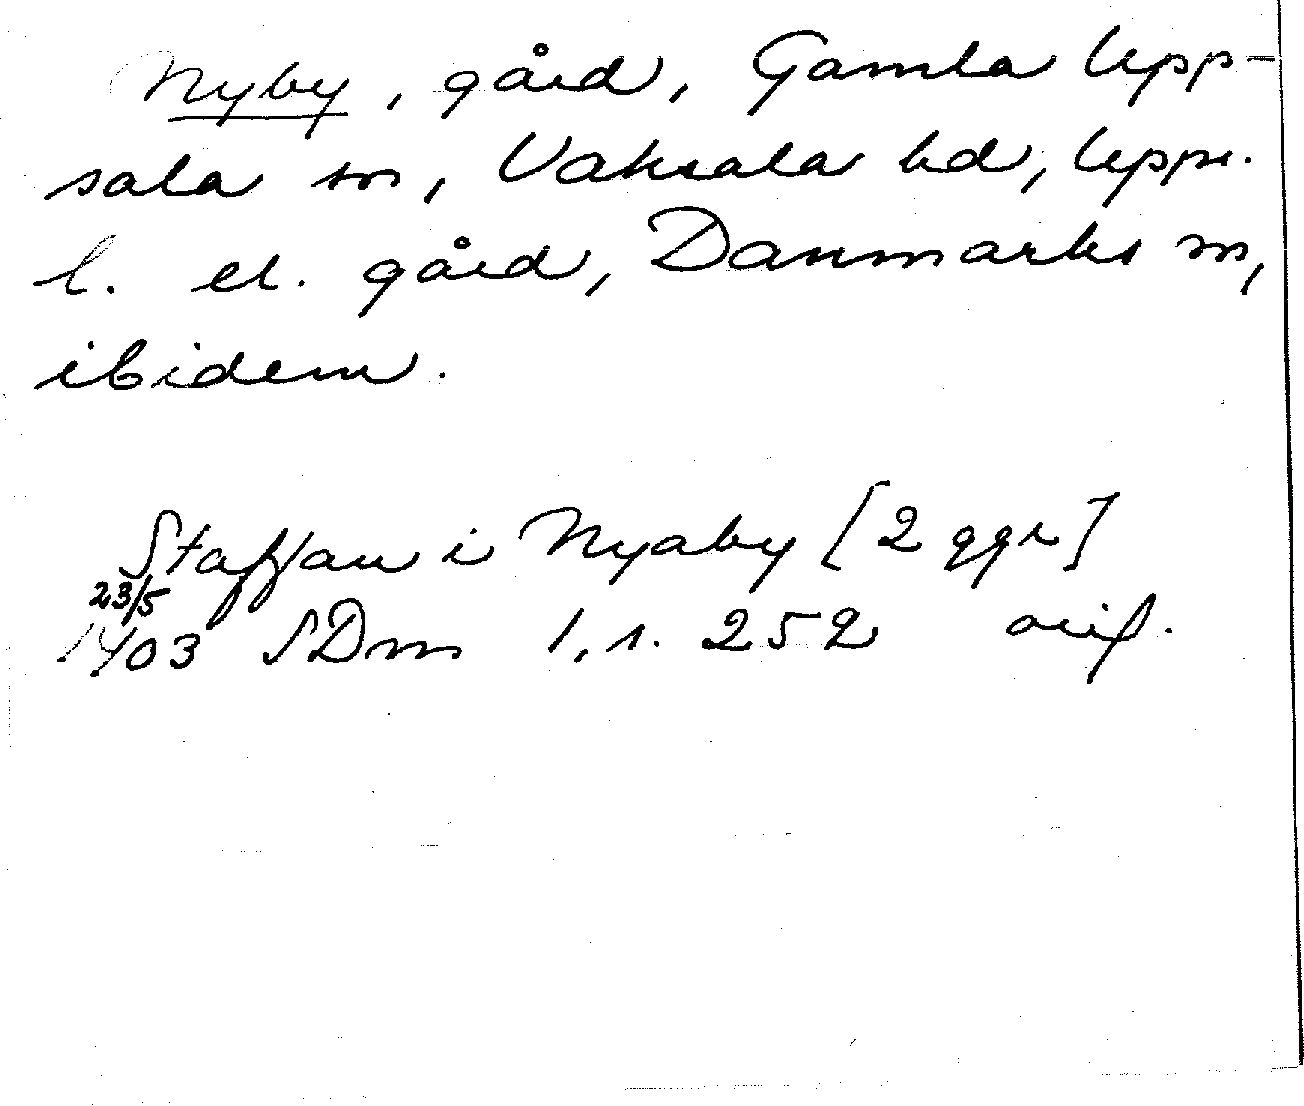 Nyby, gård, Gamla Upp-
sala sn, Vaksala hd, Upps.
l. el. gård, Danmarks sn,
ibidem.
Staffan i Nyaby [2 ggr]
23/5
1403 SDm 1, s. 252 orig.